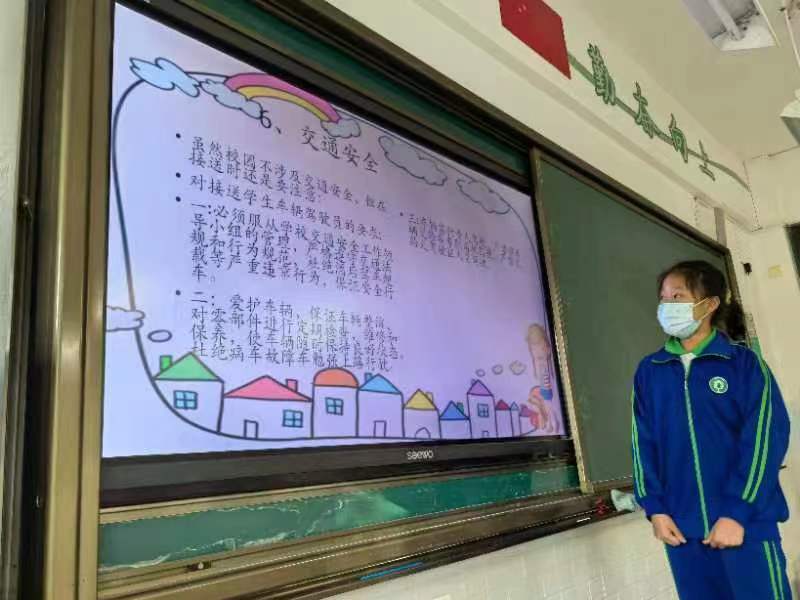 勤奋向上
6、交通安全
虽然校园不涉及交通安全、但在
接送时还是要注意：
对接送学生车辆驾驶员的要求：
一：必须服从学校交通安全工作领
导小组的管理，严格遵守交通法
规和行为规范，杜绝酒后驾车超
载等严重违章行为，保证安全行
车。
二：爱护车辆，保证车辆整洁，
对零部件进行定期检查、维修和
保养，使车辆随时保持良好状态，
杜绝病车故障车勉强上路行驶
seewo